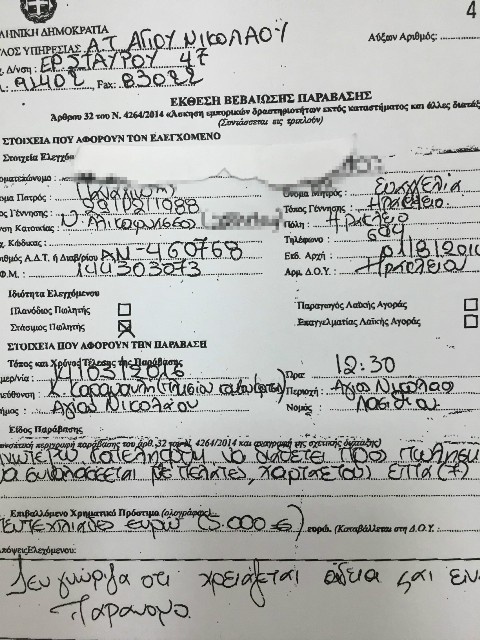 ΛΗΝΙΚΗ ΔΗΜΟΚΡΑΤΙΑ
4
ΛΟΣ ΥΠΗΡΕΣΙΑΣ Α.Τ ΑΓΙΟΥ ΝΙΚΟΛΑΟΥ
Αύξων Αριθμός:
Δ/νση: ΕΡ ΣΤΑΥΡΟΥ 47
91402, Fax: 83022
ΕΚΘΕΣΗ ΒΕΒΑΙΩΣΗΣ ΠΑΡΑΒΑΣΗΣ
Άρθρου 32 του Ν. 4264/2014 «Άσκηση εμπορικών δραστηριοτήτων εκτός καταστήματος και άλλες διατάξ
(Συντάσσεται εις τριπλούν)
ΣΤΟΙΧΕΙΑ ΠΟΥ ΑΦΟΡΟΥΝ ΤΟΝ ΕΛΕΓΧΟΜΕΝΟ
Στοιχεία Ελεγχό
ματεπώνυμο:
Πατρός: Παναγιώτη Όνομα Μητρός: Ευαγγελία
ος Γέννησης: Τόπος Γέννησης: Ηράκλειο
νση Κατοικίας Ν. Αλικαρνασσό Πόλη: Ηράκλειο
χ. Κώδικας: Τηλέφωνο: 694
ιθμός Α.Δ.Τ. ή Διαβ/ρίου ΑΝ-460768 Εκδ. Αρχή:
Φ.Μ. 144303073 Αρμ. Δ.Ο.Υ.: Ηρακλείου
Ιδιότητα Ελεγχόμενου
Πλανόδιος Πωλητής Παραγωγός Λαϊκής Αγοράς
Στάσιμος Πωλητής Επαγγελματίας Λαϊκής Αγοράς
ΣΤΟΙΧΕΙΑ ΠΟΥ ΑΦΟΡΟΥΝ ΤΗΝ ΠΑΡΑΒΑΣΗ
Τόπος και Χρόνος Τέλεσης της Παράβασης
μερ/νία: Ώρα: 12:30
εύθυνση: Κ Καραμανλή Περιοχή: Άγιος Νικόλαο
ήμος: Αγίου Νικολάου Νομός: Λασιθίου
Είδος Παράβασης
περιγραφή παράβασης του άρθ. 32 του Ν. 4264/2014 και αναγραφή της σχετικής διάταξης)
να διαθέτει προς πώληση
με πελάτες, χαρταετούς επτά (7)
Επιβαλλόμενο Χρηματικό Πρόστιμο (ολογράφως)
Πέντε χιλιάδες ευρώ (5.000 €) ευρώ. (Καταβάλλεται στη Δ.Ο.Υ.
πόψεις Ελεγχόμενου:
Δεν γνώριζα ότι χρειάζεται άδεια και είν
παράνομο.